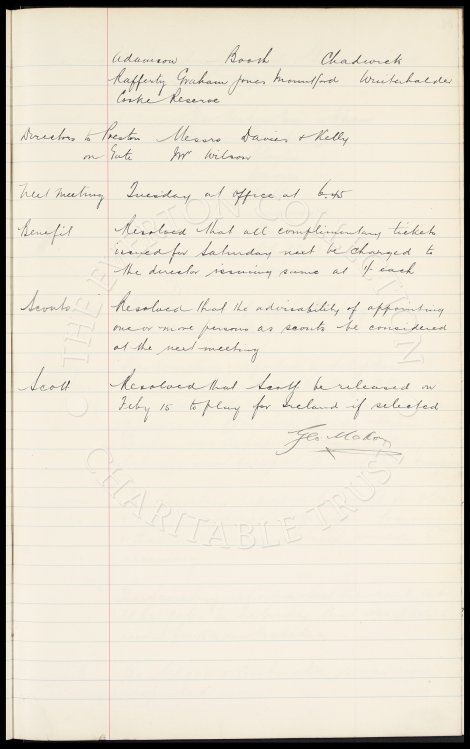 Adamson Booth Chadwick
Rafferty Graham Jones Mountford Winterhalder
Cooke Reserve
Directors to Preston Messrs Davies & Kelly
on Gate Mr Wilson
Next Meeting Tuesday at office at 6.45
Benefit Resolved that all complimentary tickets
issued for Saturday next be charged to
the director issuing same at 1/ each
Scouts Resolved that the advisability of appointing
one or more persons as scouts be considered
at the next meeting
Scott Resolved that Scott be released on
Feby 15 to play for Ireland if selected
Geo. Mahon
© THE EVERTON COLLECTION
CHARITABLE TRUST